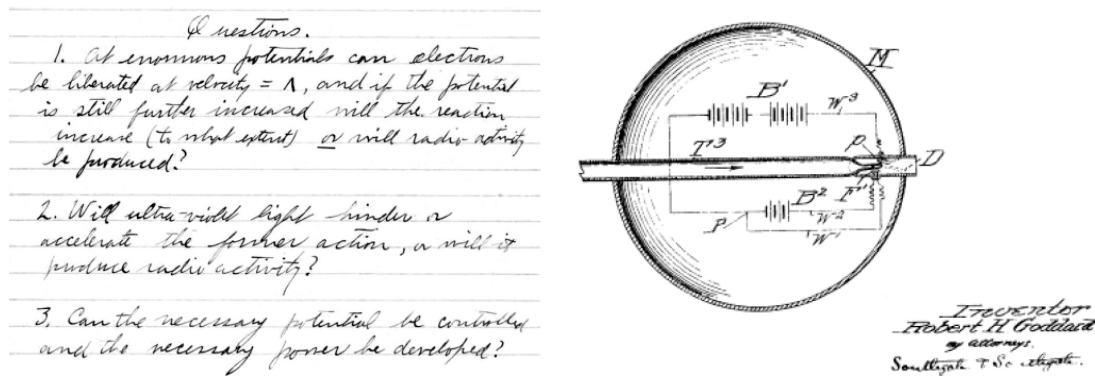 Questions.
1. At enormous potentials can electrons
be liberated at velocity = Λ, and if the potential
is still further increased will the reaction
increase (to what extent) or will radio-activity
be produced?
2. Will ultra-violet light hinder or
accelerate the former action, or will it
produce radio activity?
3. Can the necessary potential be controlled
and the necessary power be developed?
M
B' W-3
P
T'3 D
B2 F'
P W-2
W-1
Inventor
Robert H Goddard
my attorneys.
Southgate & Southgate.